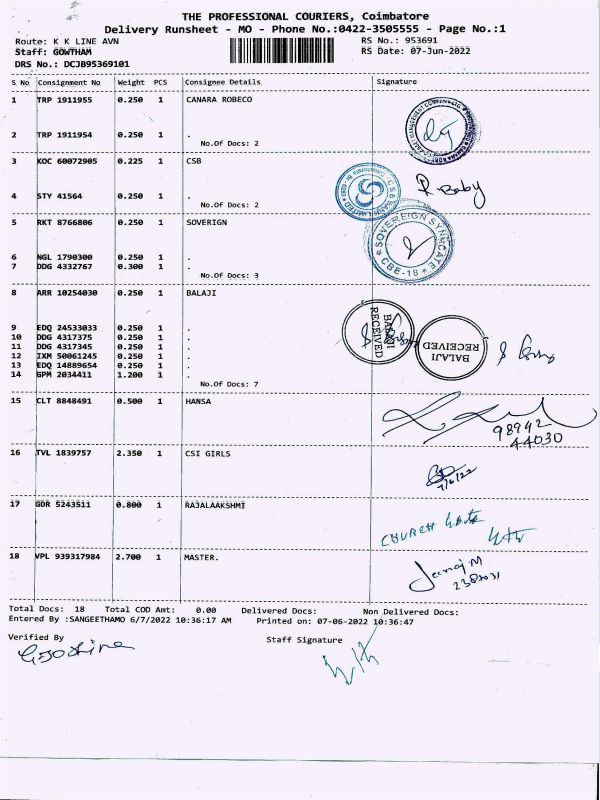 THE PROFESSIONAL COURIERS, Coimbatore
Delivery Runsheet - MO - Phone No.:0422-3505555 - Page No.:1
Route: K K LINE AVN RS No.: 953691
Staff: GOWTHAM RS Date: 07-Jun-2022
DRS No.: DCJB95369101
S No Consignment No Weight PCS Consignee Details Signature
1 TRP 1911955 0.250 1 CANARA ROBECO
2 TRP 1911954 0.250 1 .
No.Of Docs: 2
3 KOC 60072905 0.225 1 CSB
R Baby
4 STY 41564 0.250 1 .
No.Of Docs: 2
5 RKT 8766806 0.250 1 SOVERIGN
SOVEREIGN SYNDICATE
CBE-18
6 NGL 1790300 0.250 1 .
7 DDG 4332767 0.300 1 .
No.Of Docs: 3
8 ARR 10254030 0.250 1 BALAJI
9 EDQ 24533033 0.250 1 .
10 DDG 4317375 0.250 1 .
11 DDG 4317345 0.250 1 .
12 IXM 50061245 0.250 1 .
13 EDQ 14889654 0.250 1 .
14 GPM 2034411 1.200 1 .
BALAJI
RECEIVED
BALAJI
RECEIVED
No.Of Docs: 7
15 CLT 8848491 0.500 1 HANSA
98942
44030
16 TVL 1839757 2.350 1 CSI GIRLS
7/6/22
17 GDR 5243511 0.800 1 RAJALAAKSHMI
CHURCH
18 VPL 939317984 2.700 1 MASTER.
Total Docs: 18 Total COD Amt: 0.00 Delivered Docs: Non Delivered Docs:
Entered By :SANGEETHAMO 6/7/2022 10:36:17 AM Printed on: 07-06-2022 10:36:47
Verified By Staff Signature